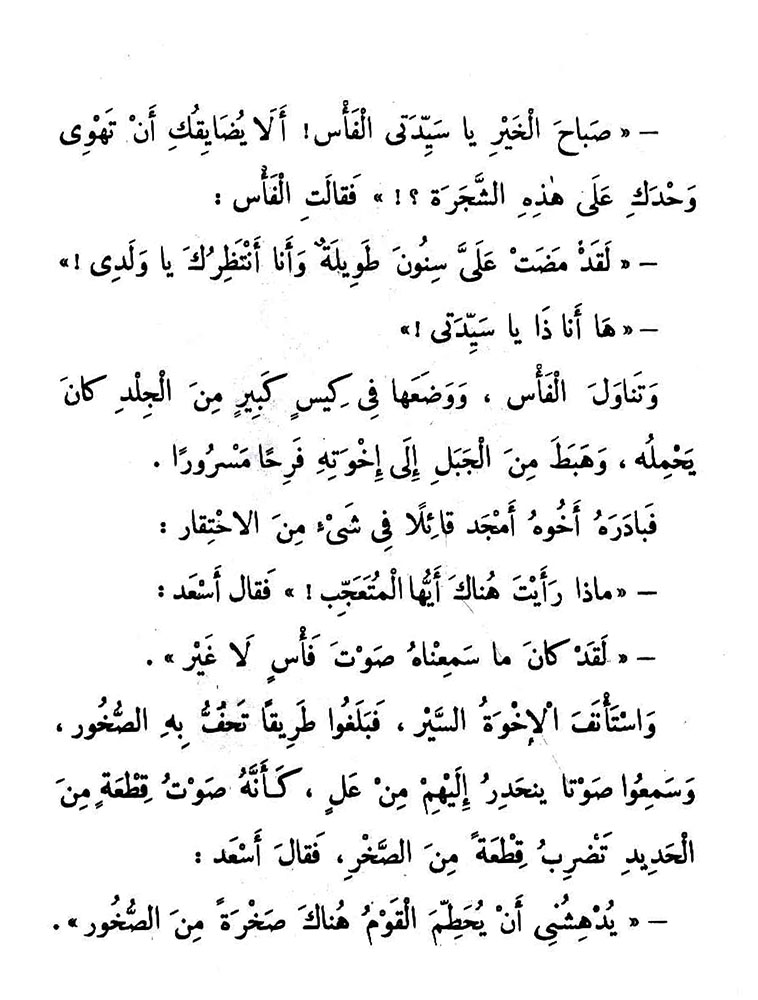 — « صَبَاحَ الْخَيْرِ يا سَيِّدَتى الْفَأْس! أَلَا يُضَايِقُكِ أَنْ تَهْوِى
وَحْدَكِ عَلَى هٰذِهِ الشَّجَرَة ؟! » فَقالَتِ الْفَأْس :
— « لَقَدْ مَضَتْ عَلَىَّ سِنُونَ طَوِيلَةٌ وَأَنا أَنْتَظِرُكَ يا وَلَدِى !»
— « هَا أَنا ذَا يا سَيِّدَتى !»
وَتَناوَلَ الْفَأْس ، وَوَضَعَها فِى كِيسٍ كَبِيرٍ مِنَ الْجِلْدِ كانَ
يَحْمِلُه ، وَهَبَطَ مِنَ الْجَبَلِ إِلَى إِخْوَتِهِ فَرِحًا مَسْرُورًا .
فَبادَرَهُ أَخُوهُ أَمْجَد قائِلًا فِى شَىْءٍ مِنَ الاحْتِقار :
— « ماذا رَأَيْتَ هُناكَ أَيُّها الْمُتَعَجِّب ! » فَقال أَسْعَد :
— « لَقَدْ كانَ ما سَمِعْناهُ صَوْتَ فَأْسٍ لَا غَيْر » .
وَاسْتَأْنَفَ الْإِخْوَةُ السَّيْر ، فَبَلَغُوا طَرِيقًا تَحُفُّ بِهِ الصُّخُور ،
وَسَمِعُوا صَوْتا ينحَدِرُ إِلَيْهِمْ مِنْ عَلٍ ، كَأَنَّهُ صَوْتُ قِطْعَةٍ مِنَ
الْحَدِيدِ تَضْرِبُ قِطْعَةً مِنَ الصَّخْرِ ، فَقالَ أَسْعَد :
— « يُدْهِشُنِى أَنْ يُحَطِّمَ الْقَوْمُ هُناكَ صَخْرَةً مِنَ الصُّخُور » .